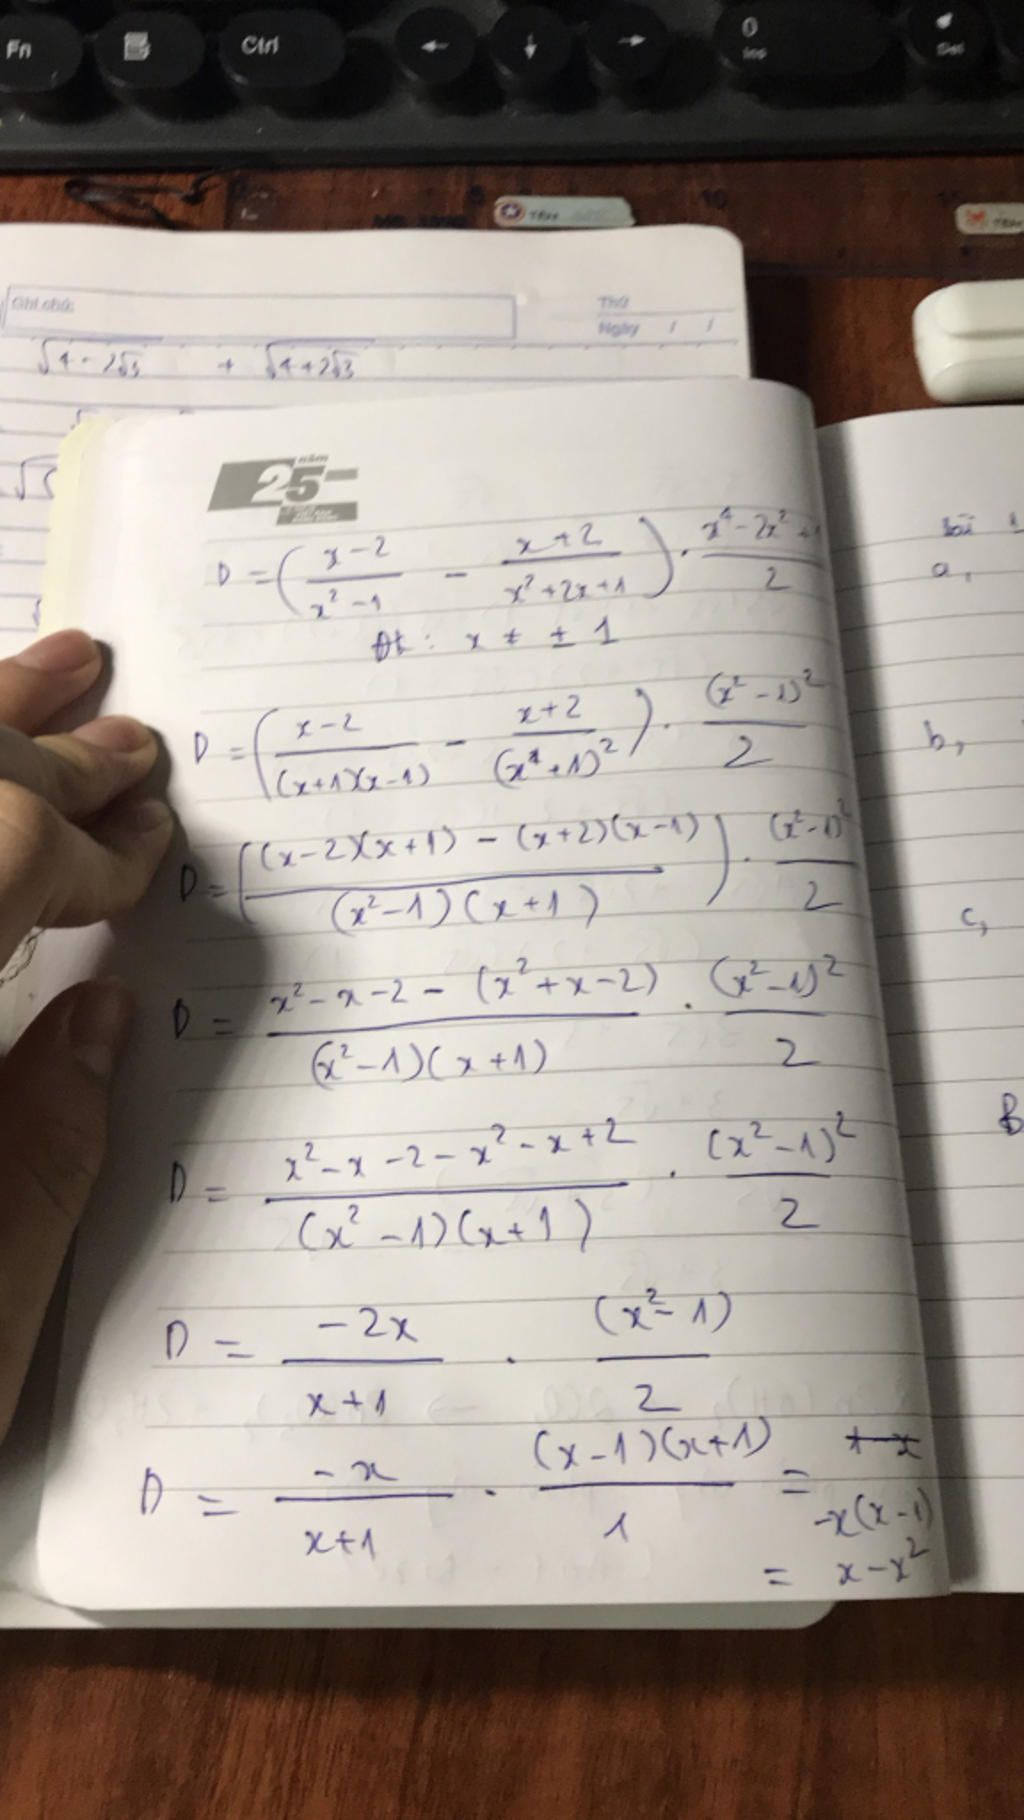 Fn Ctrl ← ↓ → 0 Ins Del
10
TEM
Ghi chú: Thứ
Ngày / /
√4-2√3 + √4+2√3
năm
25
D = (x-2/x²-1 - x+2/x²+2x+1) . x⁴-2x²+1/2
Đk: x ≠ ± 1
D = (x-2/(x+1)(x-1) - x+2/(x+1)²) . (x²-1)²/2
D = ((x-2)(x+1) - (x+2)(x-1)/(x²-1)(x+1)) . (x²-1)²/2
D = x²-x-2-(x²+x-2)/(x²-1)(x+1) . (x²-1)²/2
D = x²-x-2-x²-x+2/(x²-1)(x+1) . (x²-1)²/2
D = -2x/x+1 . (x²-1)/2
D = -x/x+1 . (x-1)(x+1)/1 = -x(x-1)
= x-x²
bài 1
a,
b,
c,
B